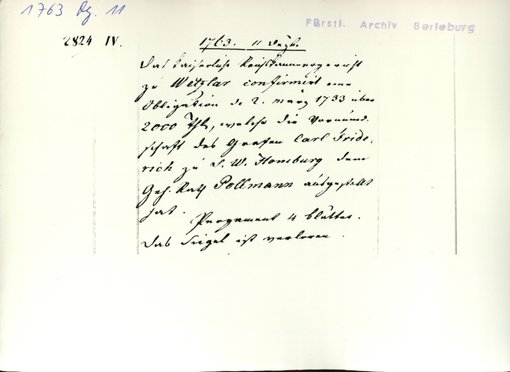 1763 Dz. 11
Fürstl. Archiv Berleburg
2824 IV.
1763. 11 Dezb.
Das Kaiserliche Reichskammergericht
zu Wetzlar confirmirt eine
Obligation de 2. März 1733 über
2000 Thlr, welche die Vormund-
schaft des Grafen Carl Fride-
rich zu S. W. Homburg dem
Geh. Rath Pollmann ausgestellt
hat.
Pergament 4 Blätter.
Das Sigel ist verloren.